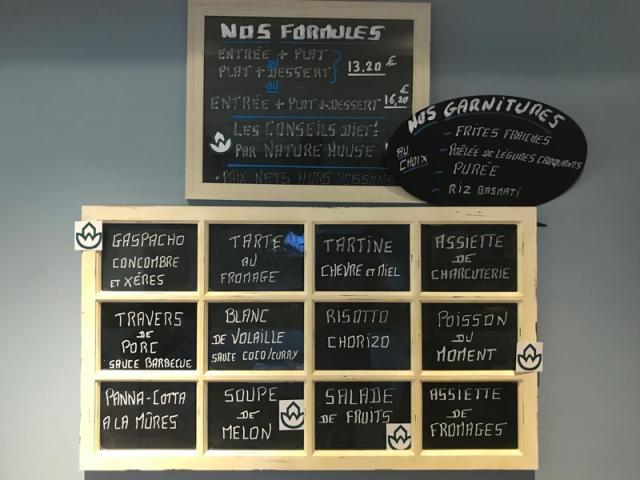 NOS FORMULES
ENTRÉE + PLAT
OU
PLAT + DESSERT
13,20 €
OU
ENTRÉE + PLAT + DESSERT 16,20 €
LES CONSEILS DIET:
PAR NATURE HOUSE
PRIX NETS HORS BOISSONS
NOS GARNITURES
AU CHOIX
- FRITES FRAICHES
- POÊLÉE DE LÉGUMES CROQUANTS
- PURÉE
- RIZ BASMATI
GASPACHO
CONCOMBRE
ET XÉRES
TARTE
AU
FROMAGE
TARTINE
CHEVRE ET MIEL
ASSIETTE
DE
CHARCUTERIE
TRAVERS
DE
PORC
SAUCE BARBECUE
BLANC
DE VOLAILLE
SAUCE COCO/CURRY
RISOTTO
CHORIZO
POISSON
DU
MOMENT
PANNA-COTTA
A LA MÛRES
SOUPE
DE
MELON
SALADE
DE FRUITS
ASSIETTE
DE
FROMAGES